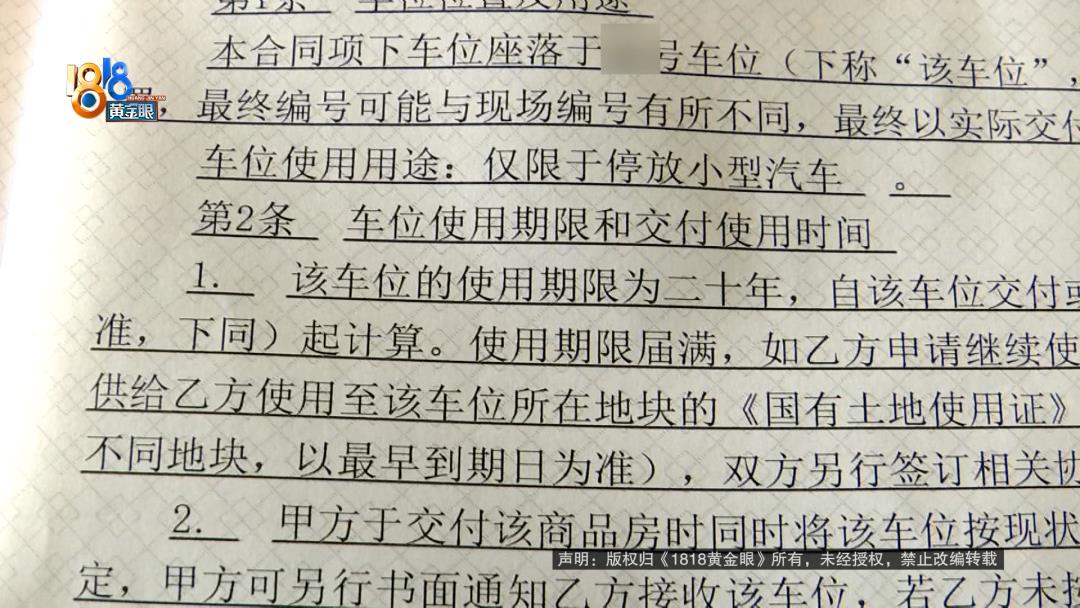 第1条 车位位置及用途
本合同项下车位座落于 号车位（下称“该车位”，
1818
黄金眼
置，最终编号可能与现场编号有所不同，最终以实际交付
车位使用用途：仅限于停放小型汽车 。
第2条 车位使用期限和交付使用时间
1. 该车位的使用期限为二十年，自该车位交付或
准，下同）起计算。使用期限届满，如乙方申请继续使
供给乙方使用至该车位所在地块的《国有土地使用证》
不同地块，以最早到期日为准），双方另行签订相关协
2. 甲方于交付该商品房时同时将该车位按现状
声明：版权归《1818黄金眼》所有，未经授权，禁止改编转载
定，甲方可另行书面通知乙方接收该车位，若乙方未按